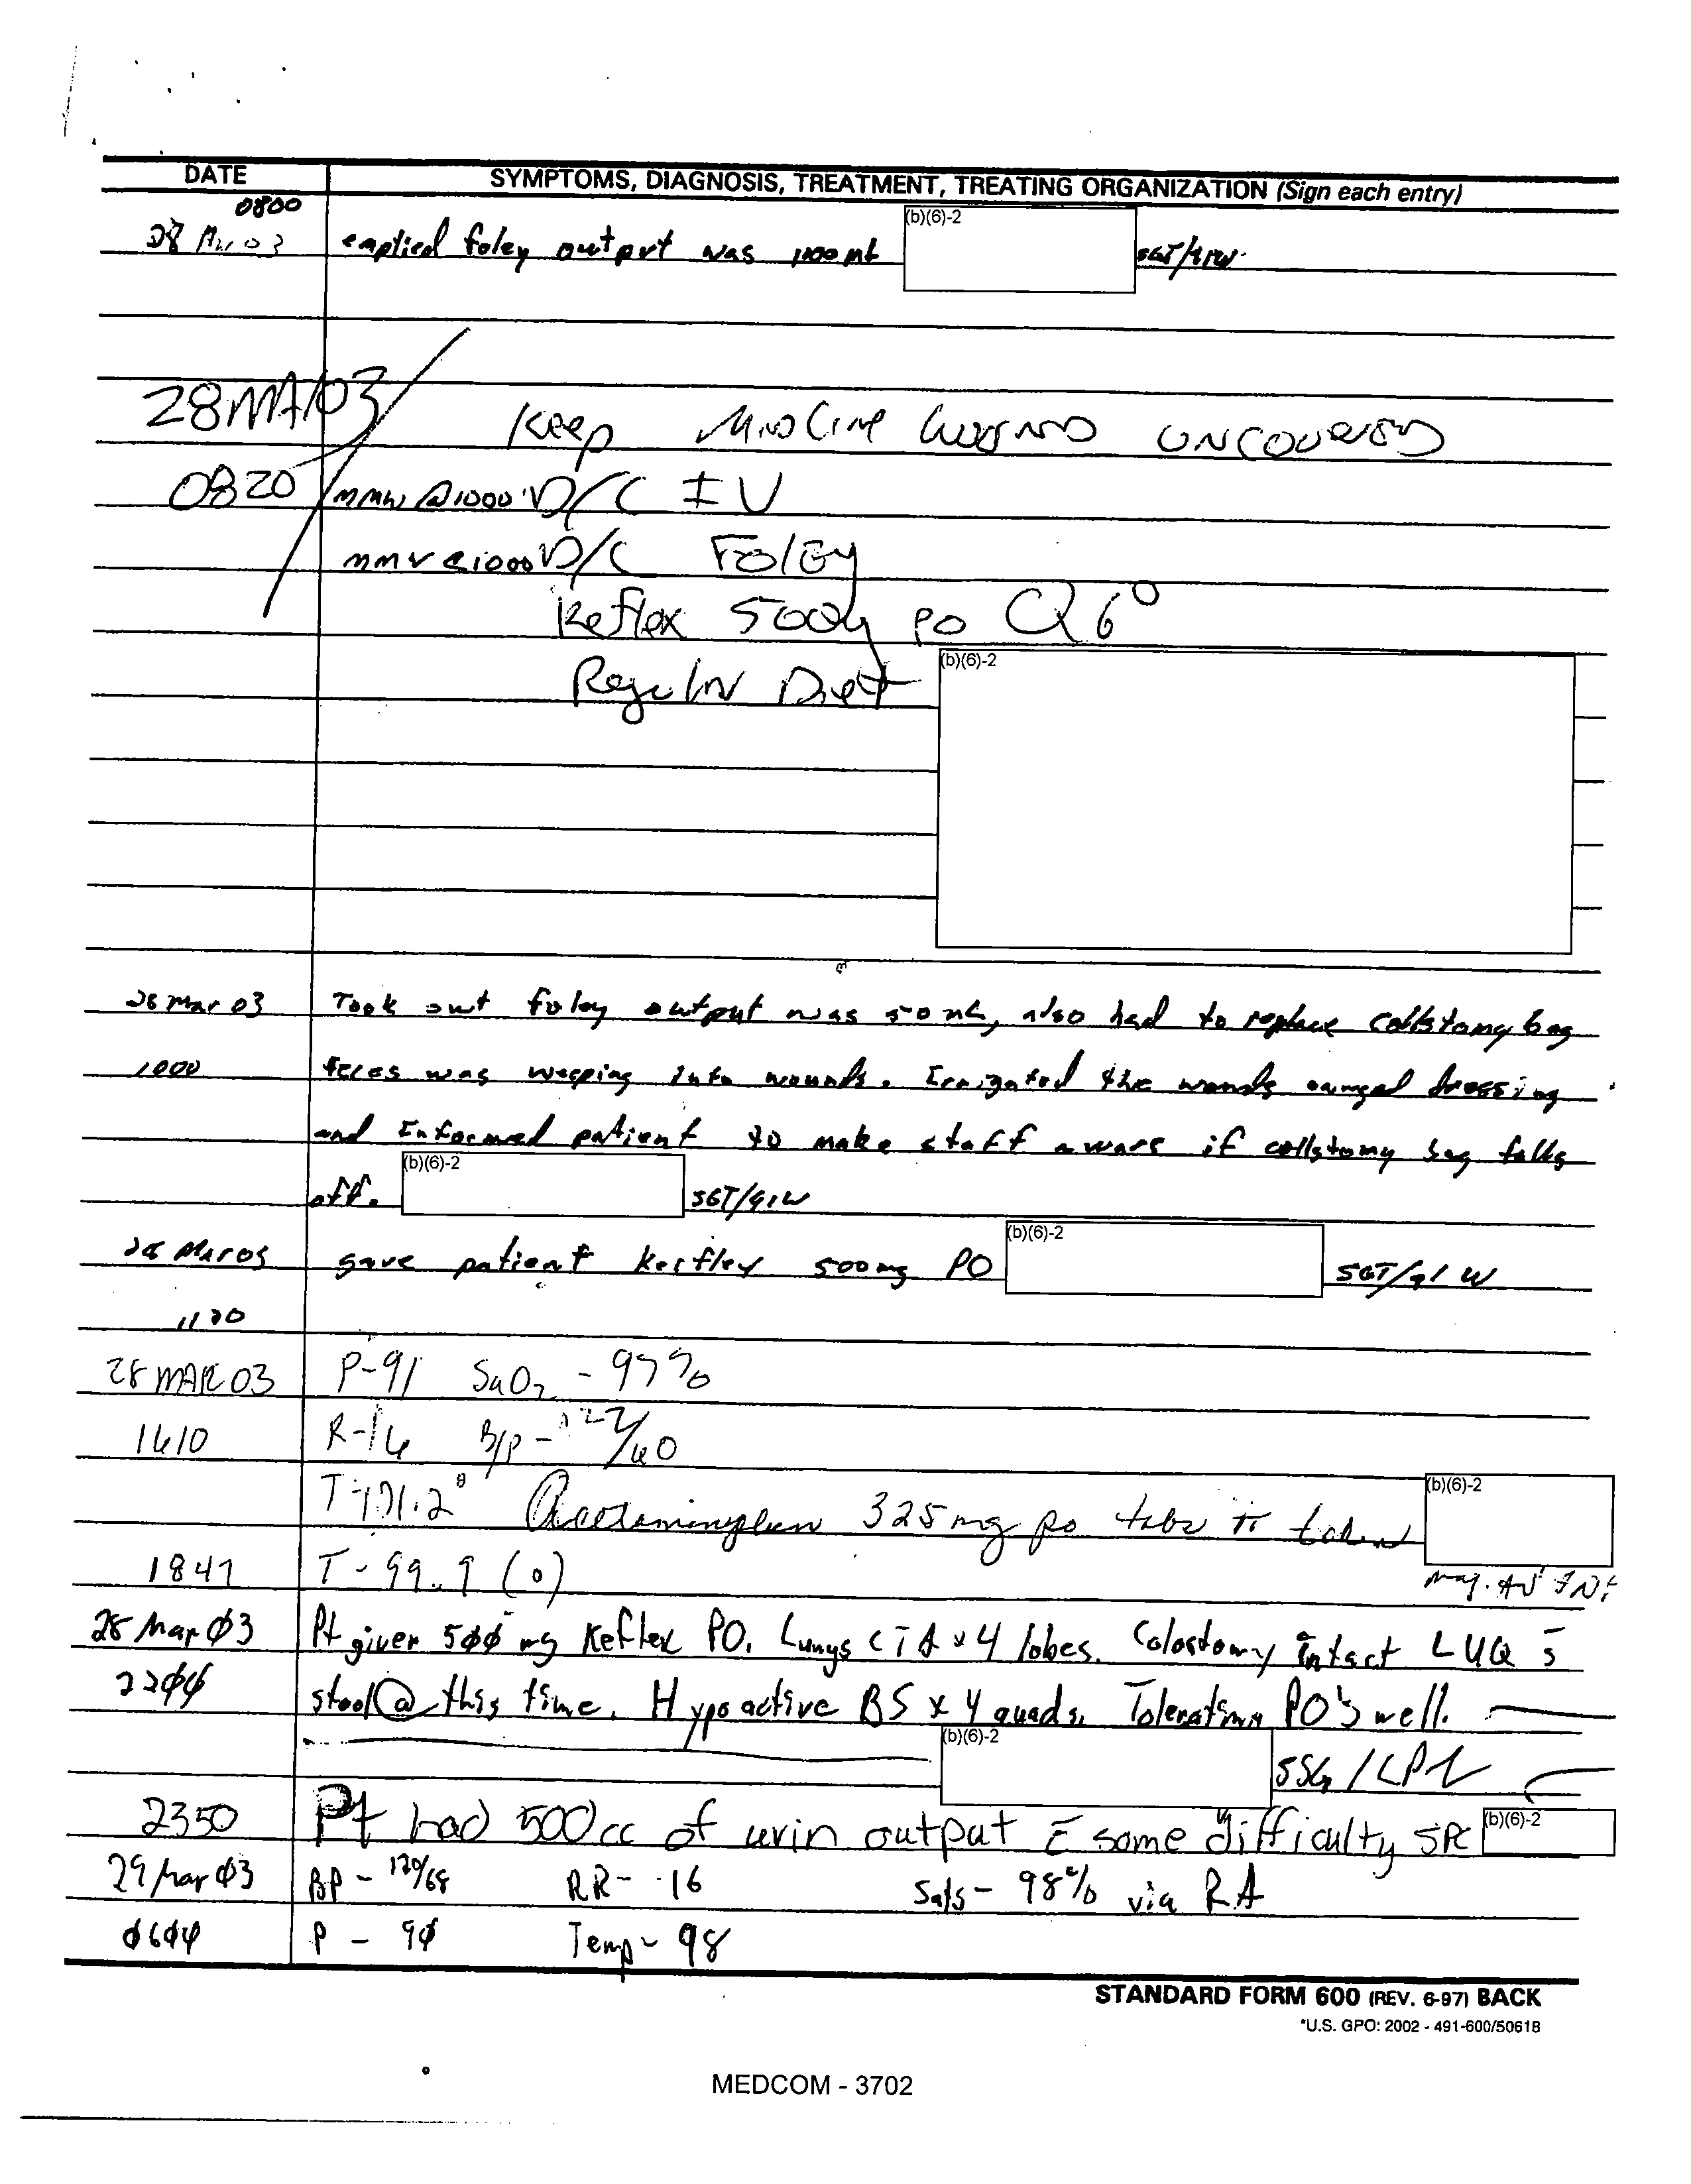 DATE SYMPTOMS, DIAGNOSIS, TREATMENT, TREATING ORGANIZATION (Sign each entry)
0800 (b)(6)-2
28 Mar 03 emptied foley output was SGT/91W
28 MAR 03 Keep Midline Wounds UNCOVERED
0820 @1000 D/C IV
1000 D/C FOLEY
Keflex 500 po Q6°
Regular Diet (b)(6)-2
28 Mar 03 Took out foley output was 50 mL, also had to replace collstomy bag
1000 feces was weeping into wounds. Irrigated the wounds dressing
and Informed patient to make staff aware if collstomy bag falls
off. (b)(6)-2 SGT/91W
28 Mar 03 gave patient 500mg PO (b)(6)-2 SGT/91W
28 MAR 03 P-91 SaO2 - 97%
1610 R-16 B/P - 122/60
T-101.2° Acetaminophen 325mg po tabs ii taken (b)(6)-2
1847 T-99.9 (o) Maj. AN
28 Mar 03 Pt given 500 mg Keflex PO. Lungs CTA x 4 lobes. Colostomy intact LUQ s̄
2200 stool @ this time. Hypoactive BS x 4 quads. Tolerating PO's well.
(b)(6)-2 SSG/LPN
2350 Pt had 500cc of urin output c̄ some difficulty (b)(6)-2
29 Mar 03 BP - 120/68 RR - 16 Sats - 98% via RA
0600 P - 90 Temp - 98
STANDARD FORM 600 (REV. 6-97) BACK
*U.S. GPO: 2002 - 491-600/50618
MEDCOM - 3702